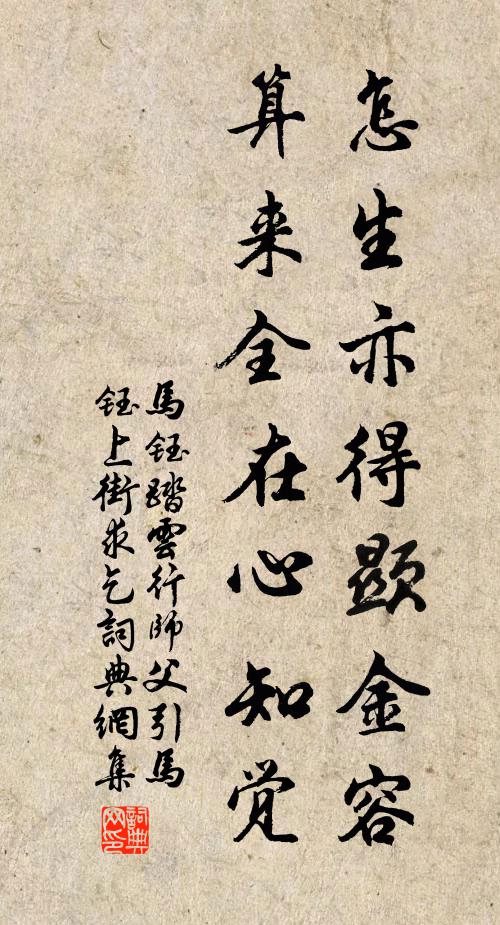 怎生亦得顕金容
算来全在心知觉
馬鈺踏雲行師父引馬
鈺上街求乞詞典網集
詞典
网印